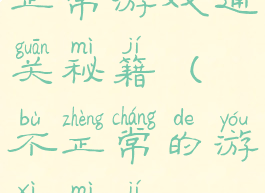 正常游戏通
guān mì jí
关秘籍（
bù zhèng cháng de yóu
不正常的游
xì mì jí